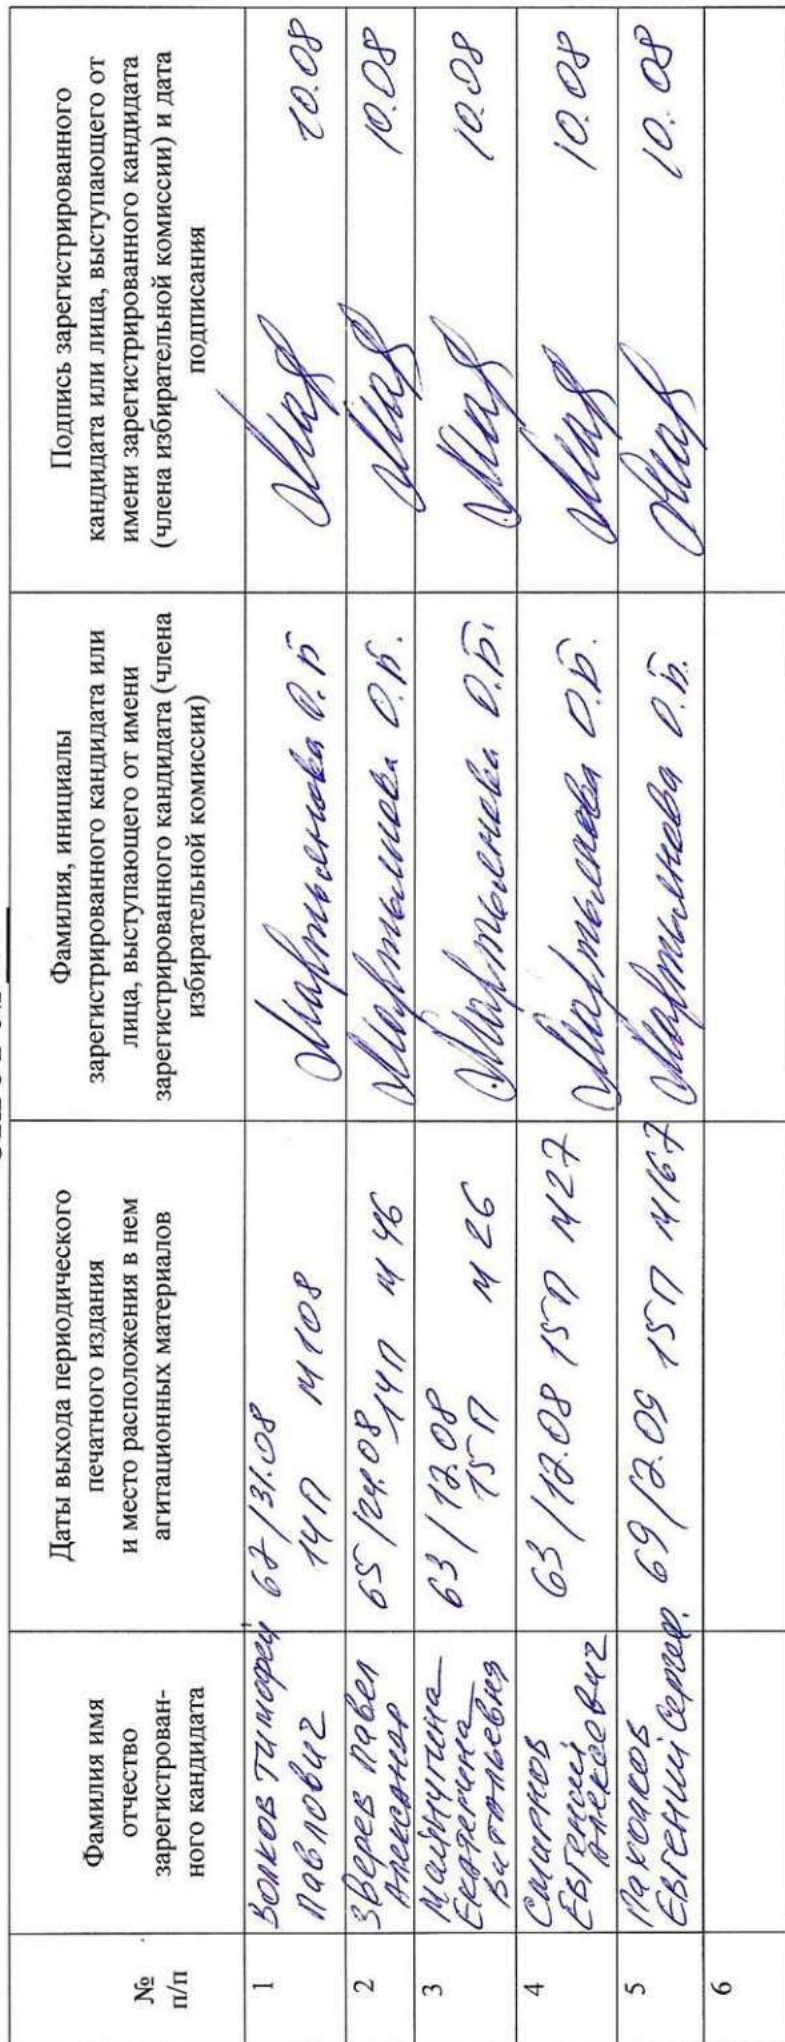 №
п/п
Фамилия имя
отчество
зарегистрирован-
ного кандидата
Даты выхода периодического
печатного издания
и место расположения в нем
агитационных материалов
Фамилия, инициалы
зарегистрированного кандидата или
лица, выступающего от имени
зарегистрированного кандидата (члена
избирательной комиссии)
Подпись зарегистрированного
кандидата или лица, выступающего от
имени зарегистрированного кандидата
(члена избирательной комиссии) и дата
подписания
1
Волков Тимофей
Павлович
67/31.08
14П М108
Мартынова О.Б
10.08
2
Зверев Павел
Александр
65/24.08
14П М46
Мартынова О.Б.
10.08
3
Екатерина
Витальевна
63/12.08
15П М26
Мартынова О.Б.
10.08
4
Смирнов
Евгений
Алексеевич
63/12.08 15П М27
Мартынова О.Б.
10.08
5
Пахомов
Евгений Сергеев.
69/2.09 15П М167
Мартынова О.Б.
10.08
6